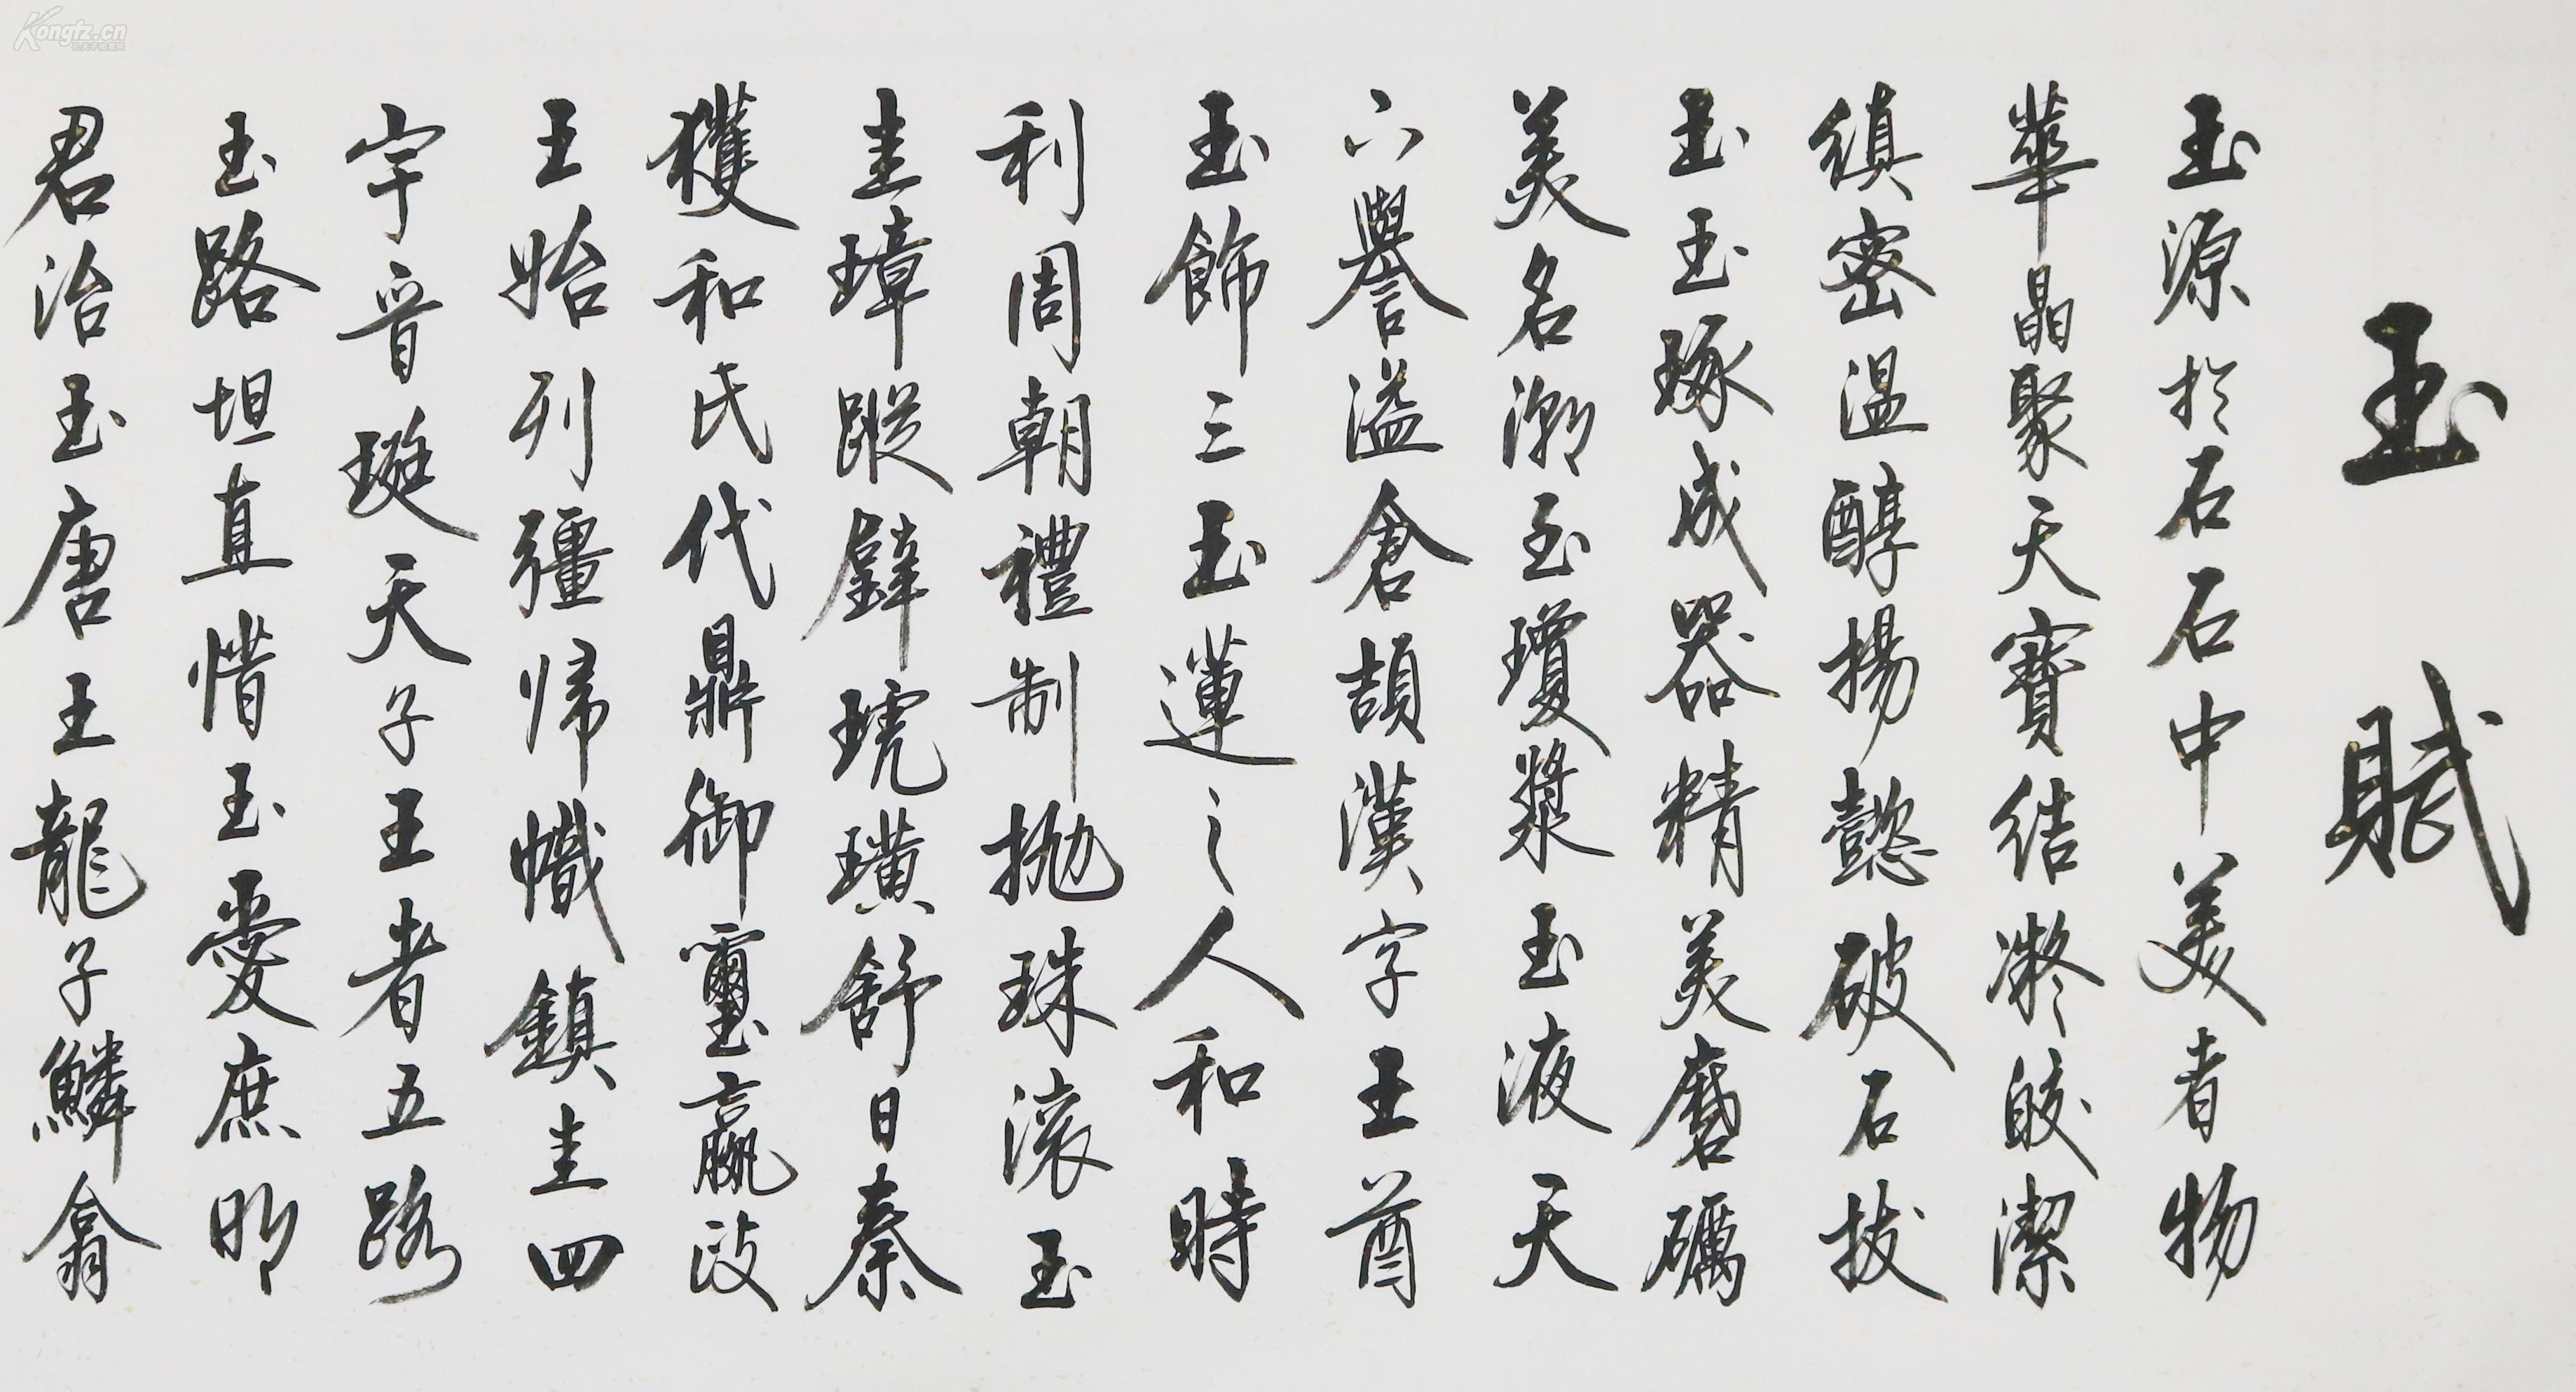 玉賦
玉源於石石中美者物
華晶聚天寶結凝皎潔
縝密溫醇揚懿破石拔
玉玉琢成器精美磨礪
美名溯玉瓊漿玉液天
六譽溢倉頡漢字王酋
玉飾三玉蓮之人和時
利周朝禮制拋珠滾玉
圭璋蹤璧琥璜舒日秦
獲和氏代鼎御璽嬴政
王始列疆帰幟鎮圭四
宇晋珽天子王者五路
玉路坦直惜玉愛庶明
君治玉唐王龍子鱗翕
Kongfz.cn
孔夫子旧书网